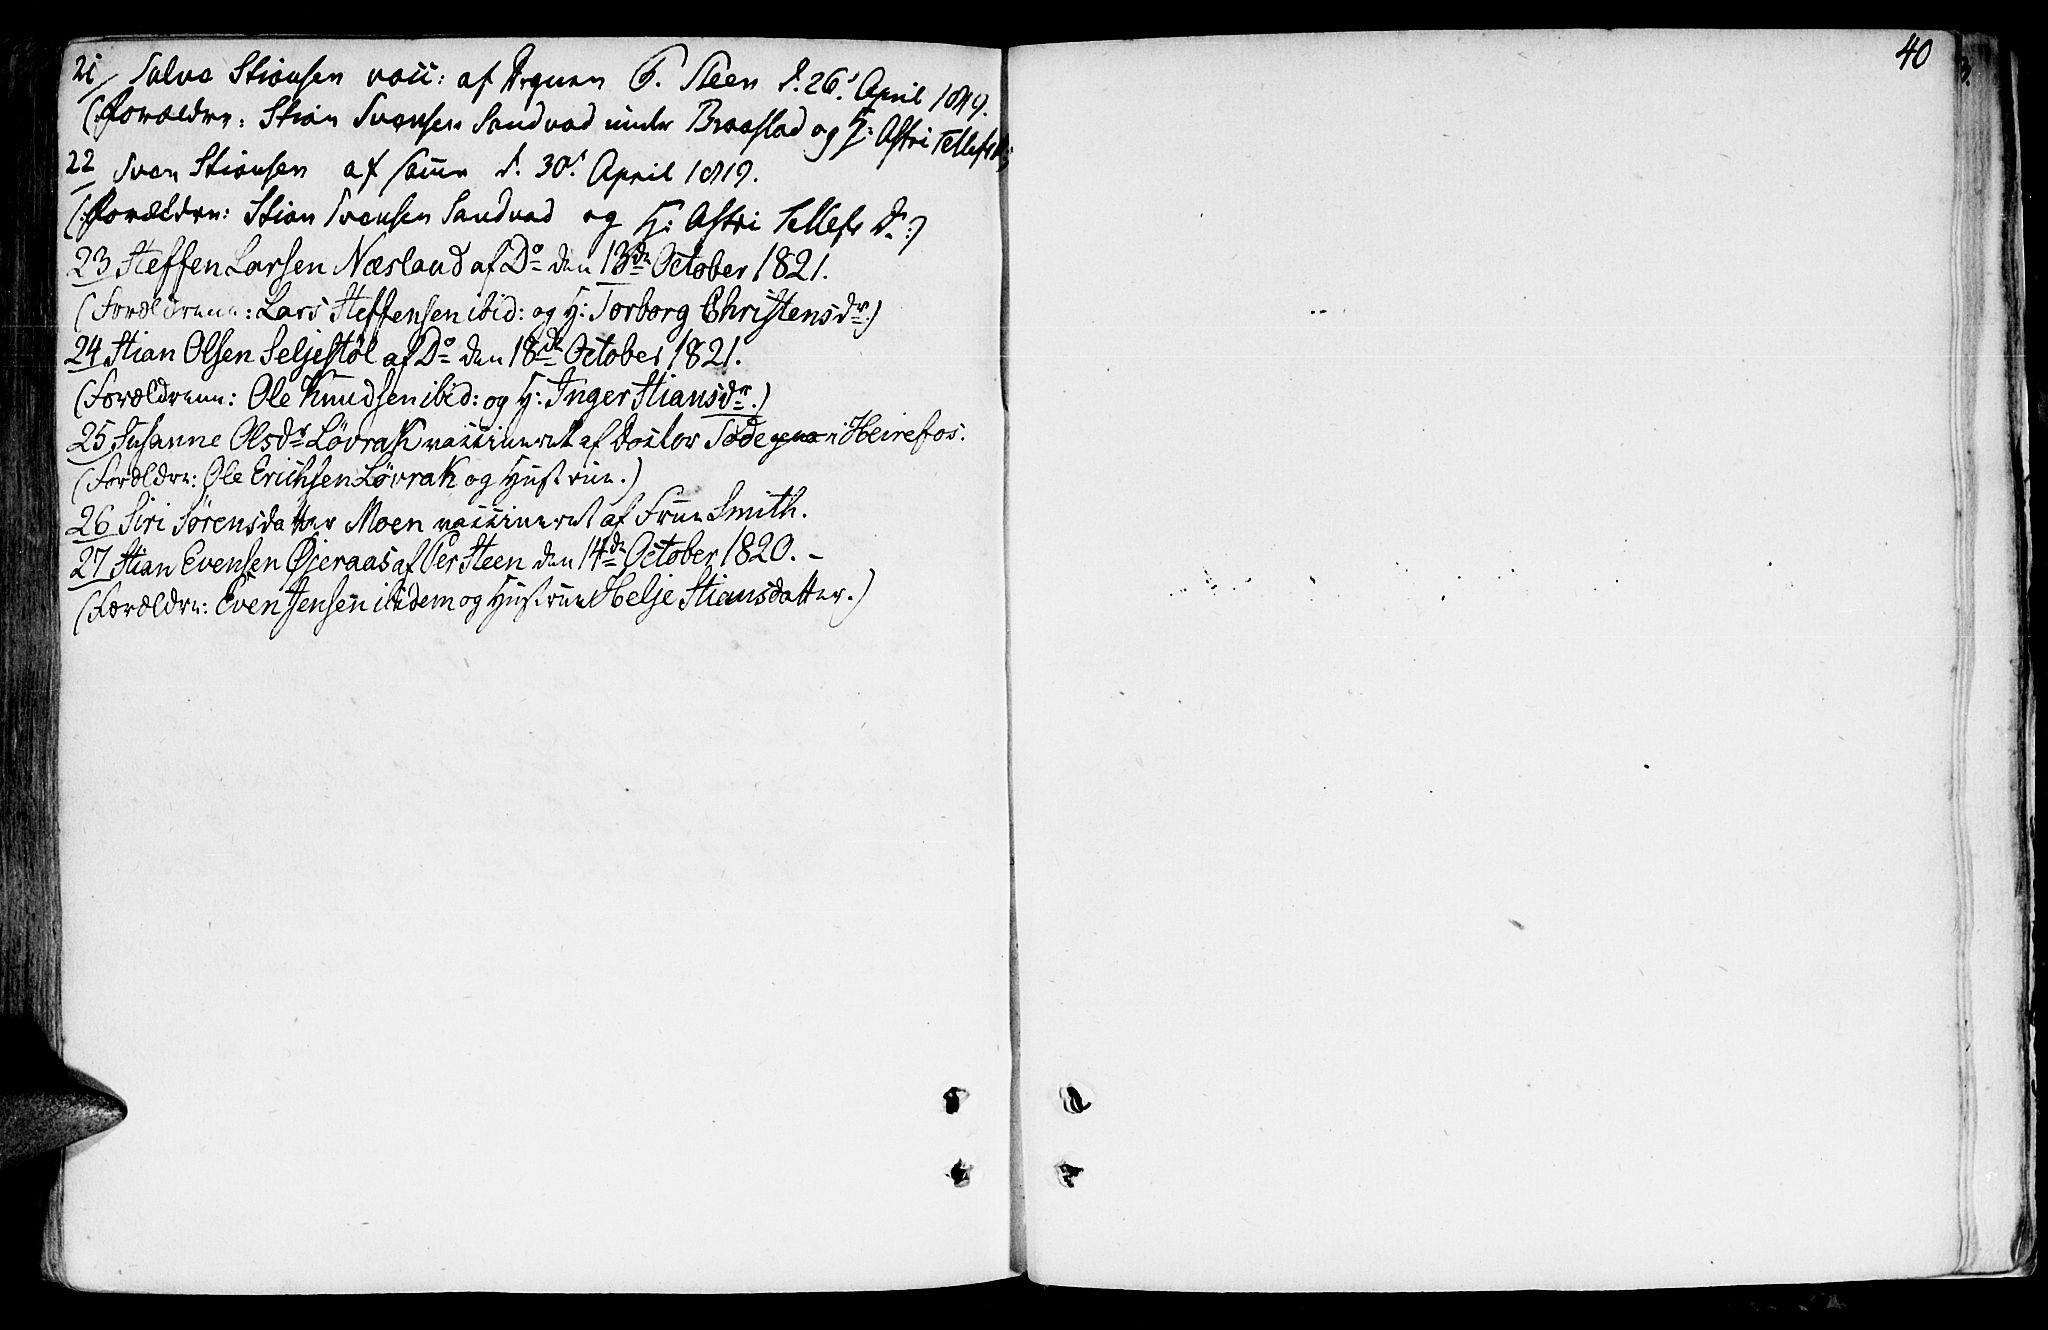 21/ Salve Stiansen vacc: af Degnen P. Steen d. 26d April 1819.
(Forældre: Stian Svensen Sandvad under Braastad og H: Astri Tellefs D:)
22 Sven Stiansen af samme d. 30d April 1819.
(Forældre: Stian Svensen Sandvad og H: Astri Tellefs D:)
23 Steffen Larsen Næsland af Do den 13de October 1821.
(Forældrene: Lars Steffensen ibid: og H: Torborg Christensdr.)
24 Stian Olsen Seljestøl af Do den 18de October 1821.
(Forældrene: Ole Knudsen ibid: og H: Inger Stiansdr.)
25 Susanne Olsdr Løvrak vaccineret af Doctor Tode i Heirefos.
(Forældre: Ole Erichsen Løvrak og Hustrue.)
26 Siri Sørensdatter Moen vaccineret af Frue Smith.
27 Stian Evensen Øieraas af Per Steen den 14de October 1820. –
(Forældre: Even Jensen ibidem og Hustrue Helje Stiansdatter.)
40